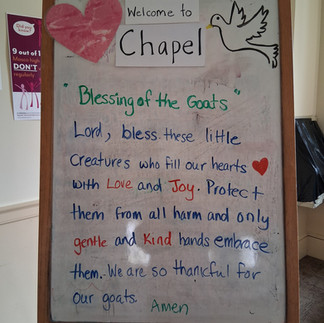 Welcome to
Chapel
"Blessing of the Goats"
Lord, bless these little
creatures who fill our hearts
with Love and Joy. Protect
them from all harm and only
gentle and Kind hands embrace
them. We are so thankful for
our goats. Amen
9 out of 1
DON'T
regularly